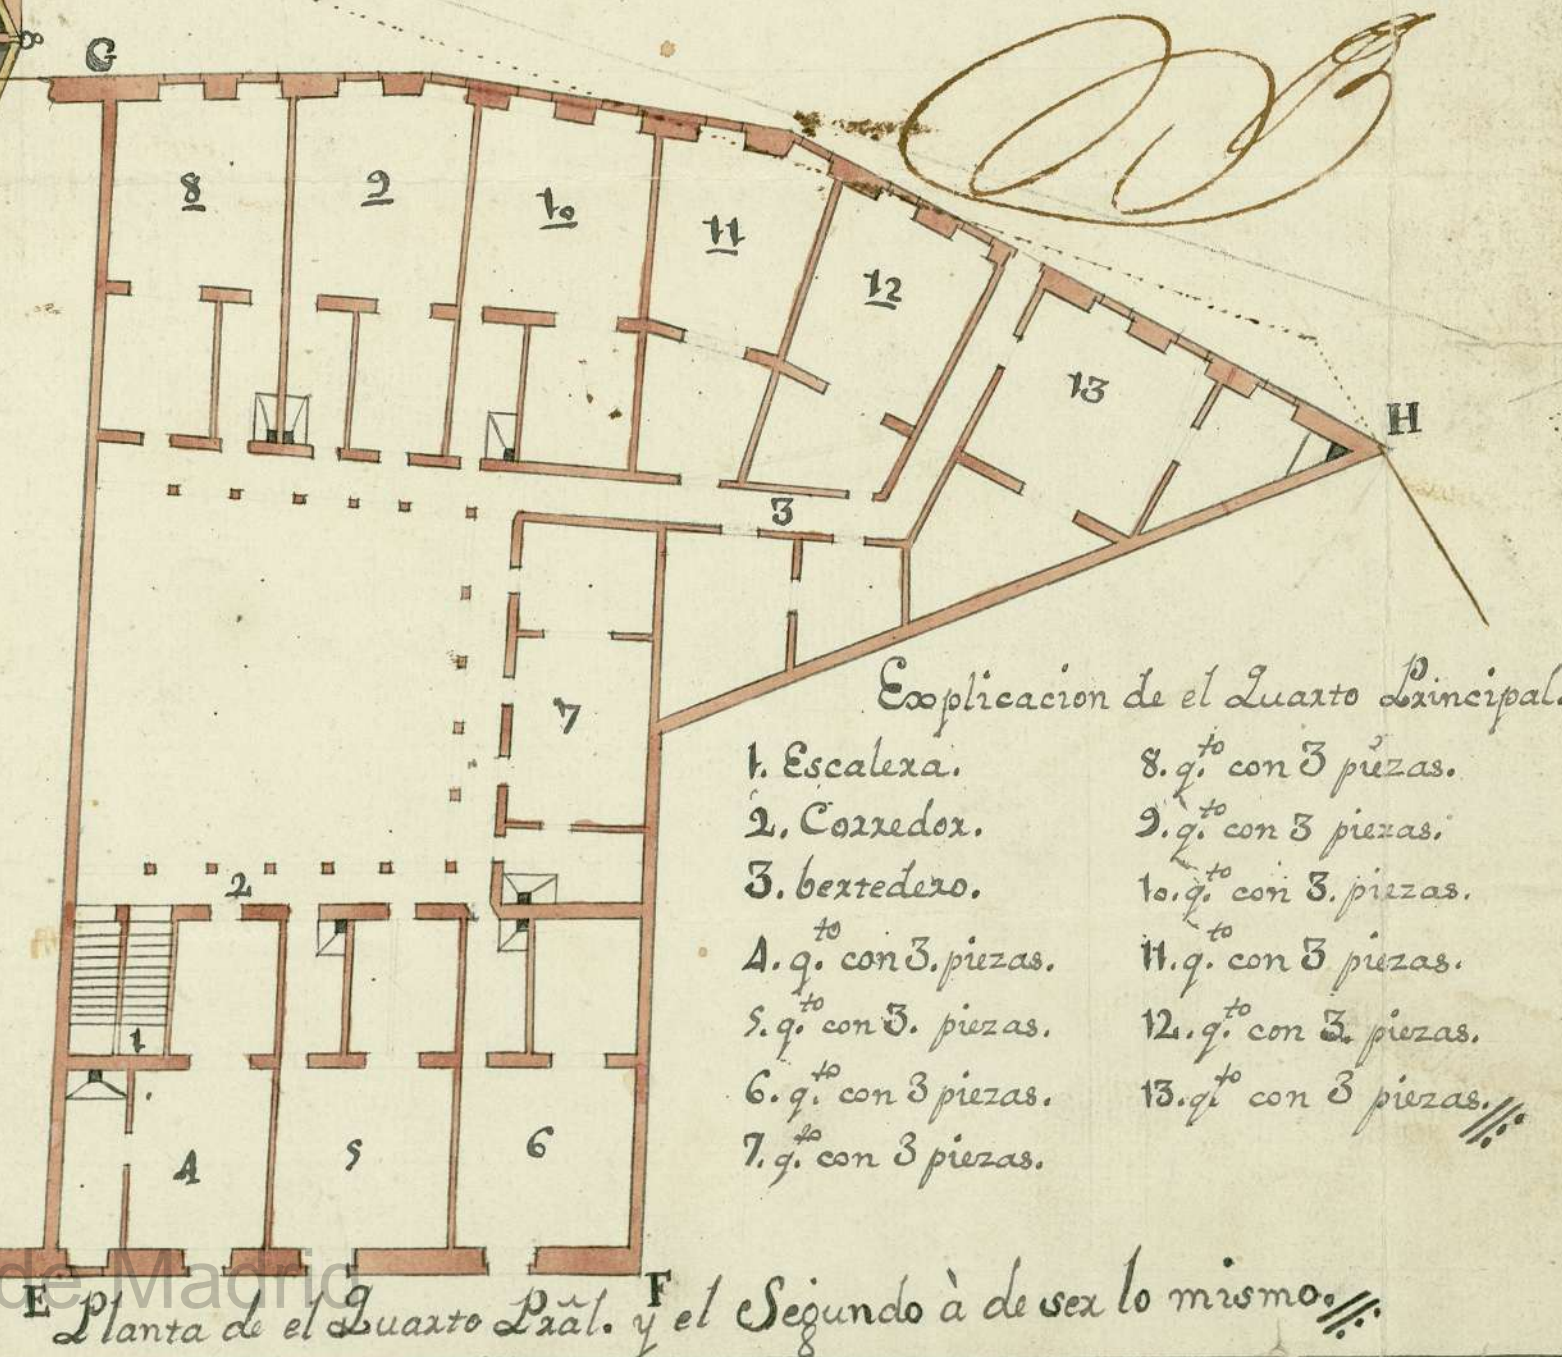 G
H
8
9
10
11
12
13
3
7
2
1
4
5
6
Explicacion de el Quarto Principal.
1. Escalera.
2. Corredor.
3. bertedero.
4. q.to con 3. piezas.
5. q.to con 3. piezas.
6. q.to con 3 piezas.
7. q.to con 3 piezas.
8. q.to con 3 piezas.
9. q.to con 3 piezas.
10. q.to con 3. piezas.
11. q.to con 3 piezas.
12. q.to con 3. piezas.
13. q.to con 3 piezas.
de Madrid
E
F
Planta de el Quarto Prãl. y el Segundo à de ser lo mismo.